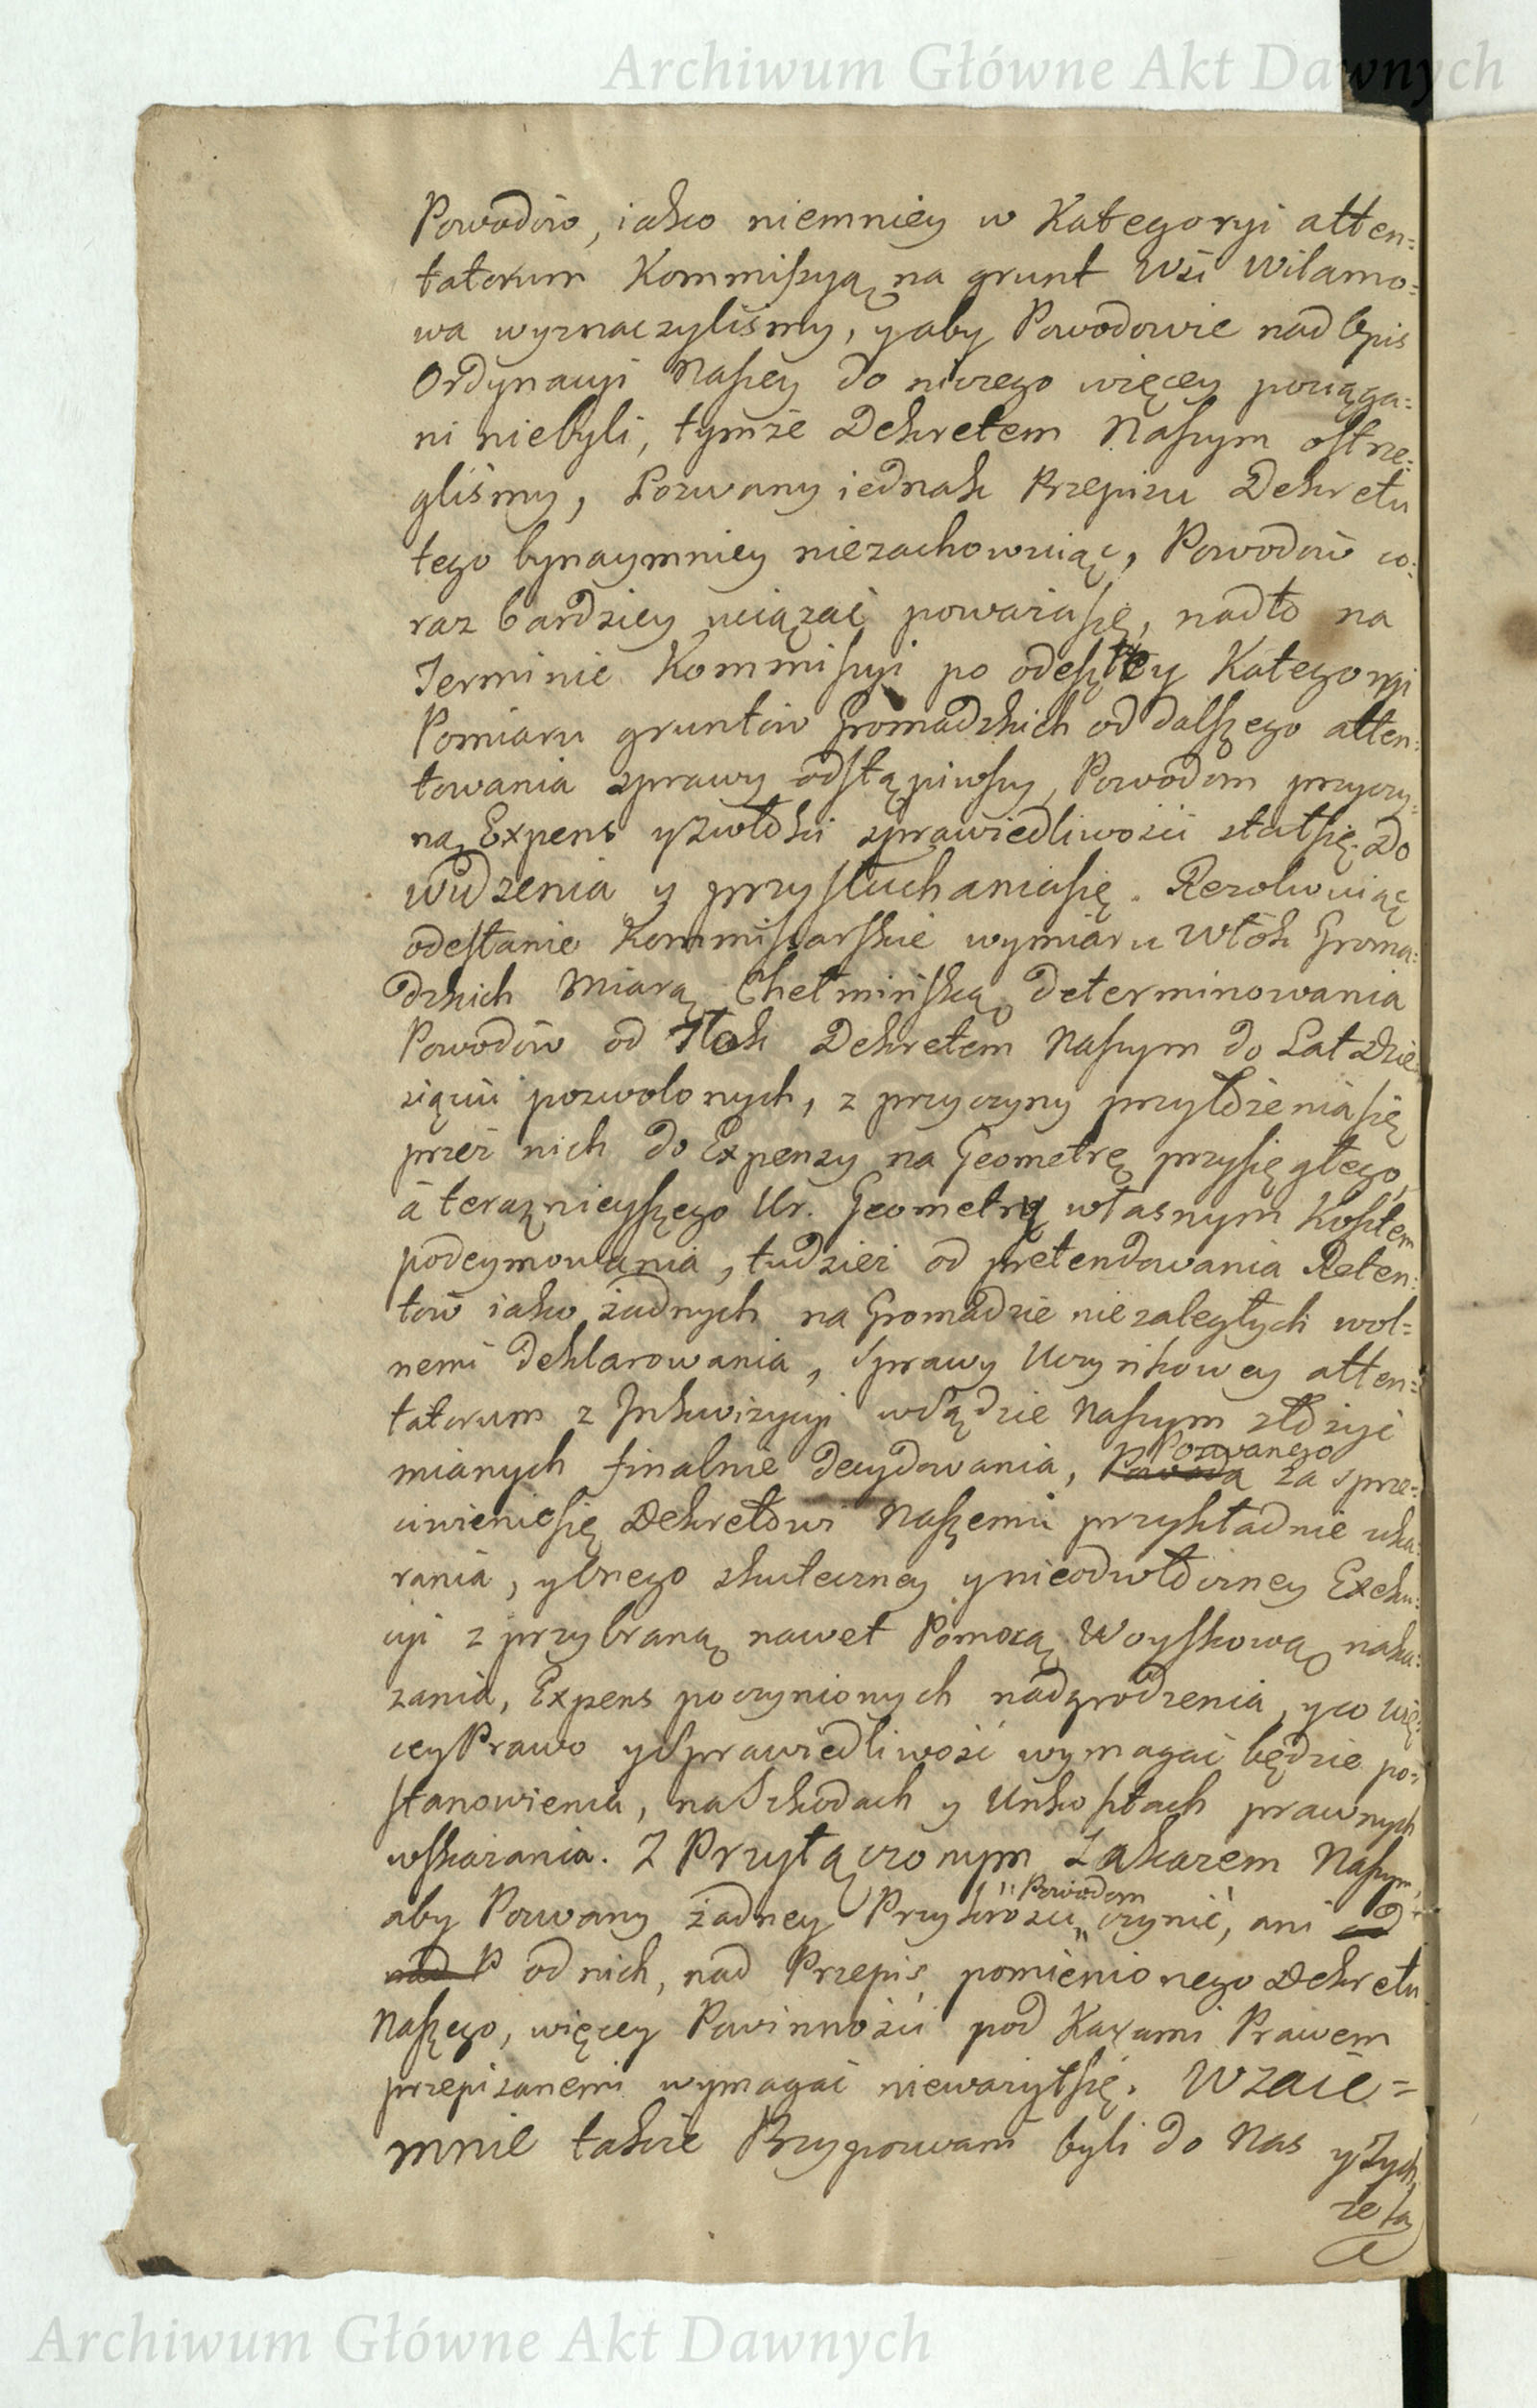 Archiwum Główne Akt Dawnych
Powodów, iako niemniey w Kategoryi atten=
tatorum Kommissyą na grunt Wsi Wilamo=
wa wyznaczyliśmy, y aby Powodowie nad Opis
Ordynacyi Naszey do niczego więcey pociąga=
ni niebyli, tymże Dekretem Naszym ostrze=
gliśmy, Pozwany iednak Przepisu Dekretu
tego bynaymniey niezachowuiąc, Powodów co=
raz bardziey uciązać poważasię, nadto na
Terminie Kommissyi po odeszłey Kategoryi
Pomiaru gruntów Gromadzkich od dalszego atten=
towania sprawy odstąpiwszy, Powodom przyczy=
ną Expens y zwłoki sprawiedliwości stałsię. Do
widzenia y przysłuchaniasię. Rezolwuiąc
odesłanie Kommissarskie wymiaru Włók Groma=
dzkich Miarą Chełmińską determinowania
Powodów od Tłok Dekretem Naszym do Lat Dzie
siąciu pozwolonych, z przyczyny przyłożeniasię
przez nich do Expensy na Geometrę przysięgłego,
à teraznieyszego Ur. Geometrę własnym Kosztem
podeymowania, tudzież od pretendowania Reten=
tów iako żadnych na Gromadzie niezaległych wol=
nemi deklarowania, Sprawy Uczynkowey atten=
tatorum z Inkwizycyi w Sądzie Naszym złożyć
mianych finalnie decydowania, Pozwanego za sprze=
ciwieniesię Dekretowi Naszemu przykładnie uka=
rania, y onego skuteczney y nieodwłoczney Exeku=
cyi z przybraną nawet Pomocą Woyskową naka=
zania, Expens poczynionych nadgrodzenia, y co wię=
cey Prawo y Sprawiedliwość wymagać będzie po=
stanowienia, na Szkodach y Unkosztach prawnych
wskazania. Z Przyłączonym Zakazem Naszym,
aby Pozwany żadney Przykrości „Powodom„ czynić, ani od
nad P od nich, nad Przepis pomienionego Dekretu
Naszego, więcey Powinności pod Karami Prawem
przepisanemi wymagać nieważyłsię. Wzaie=
mnie także Przypozwani byli do Nas y Tych
że Są
Archiwum Główne Akt Dawnych